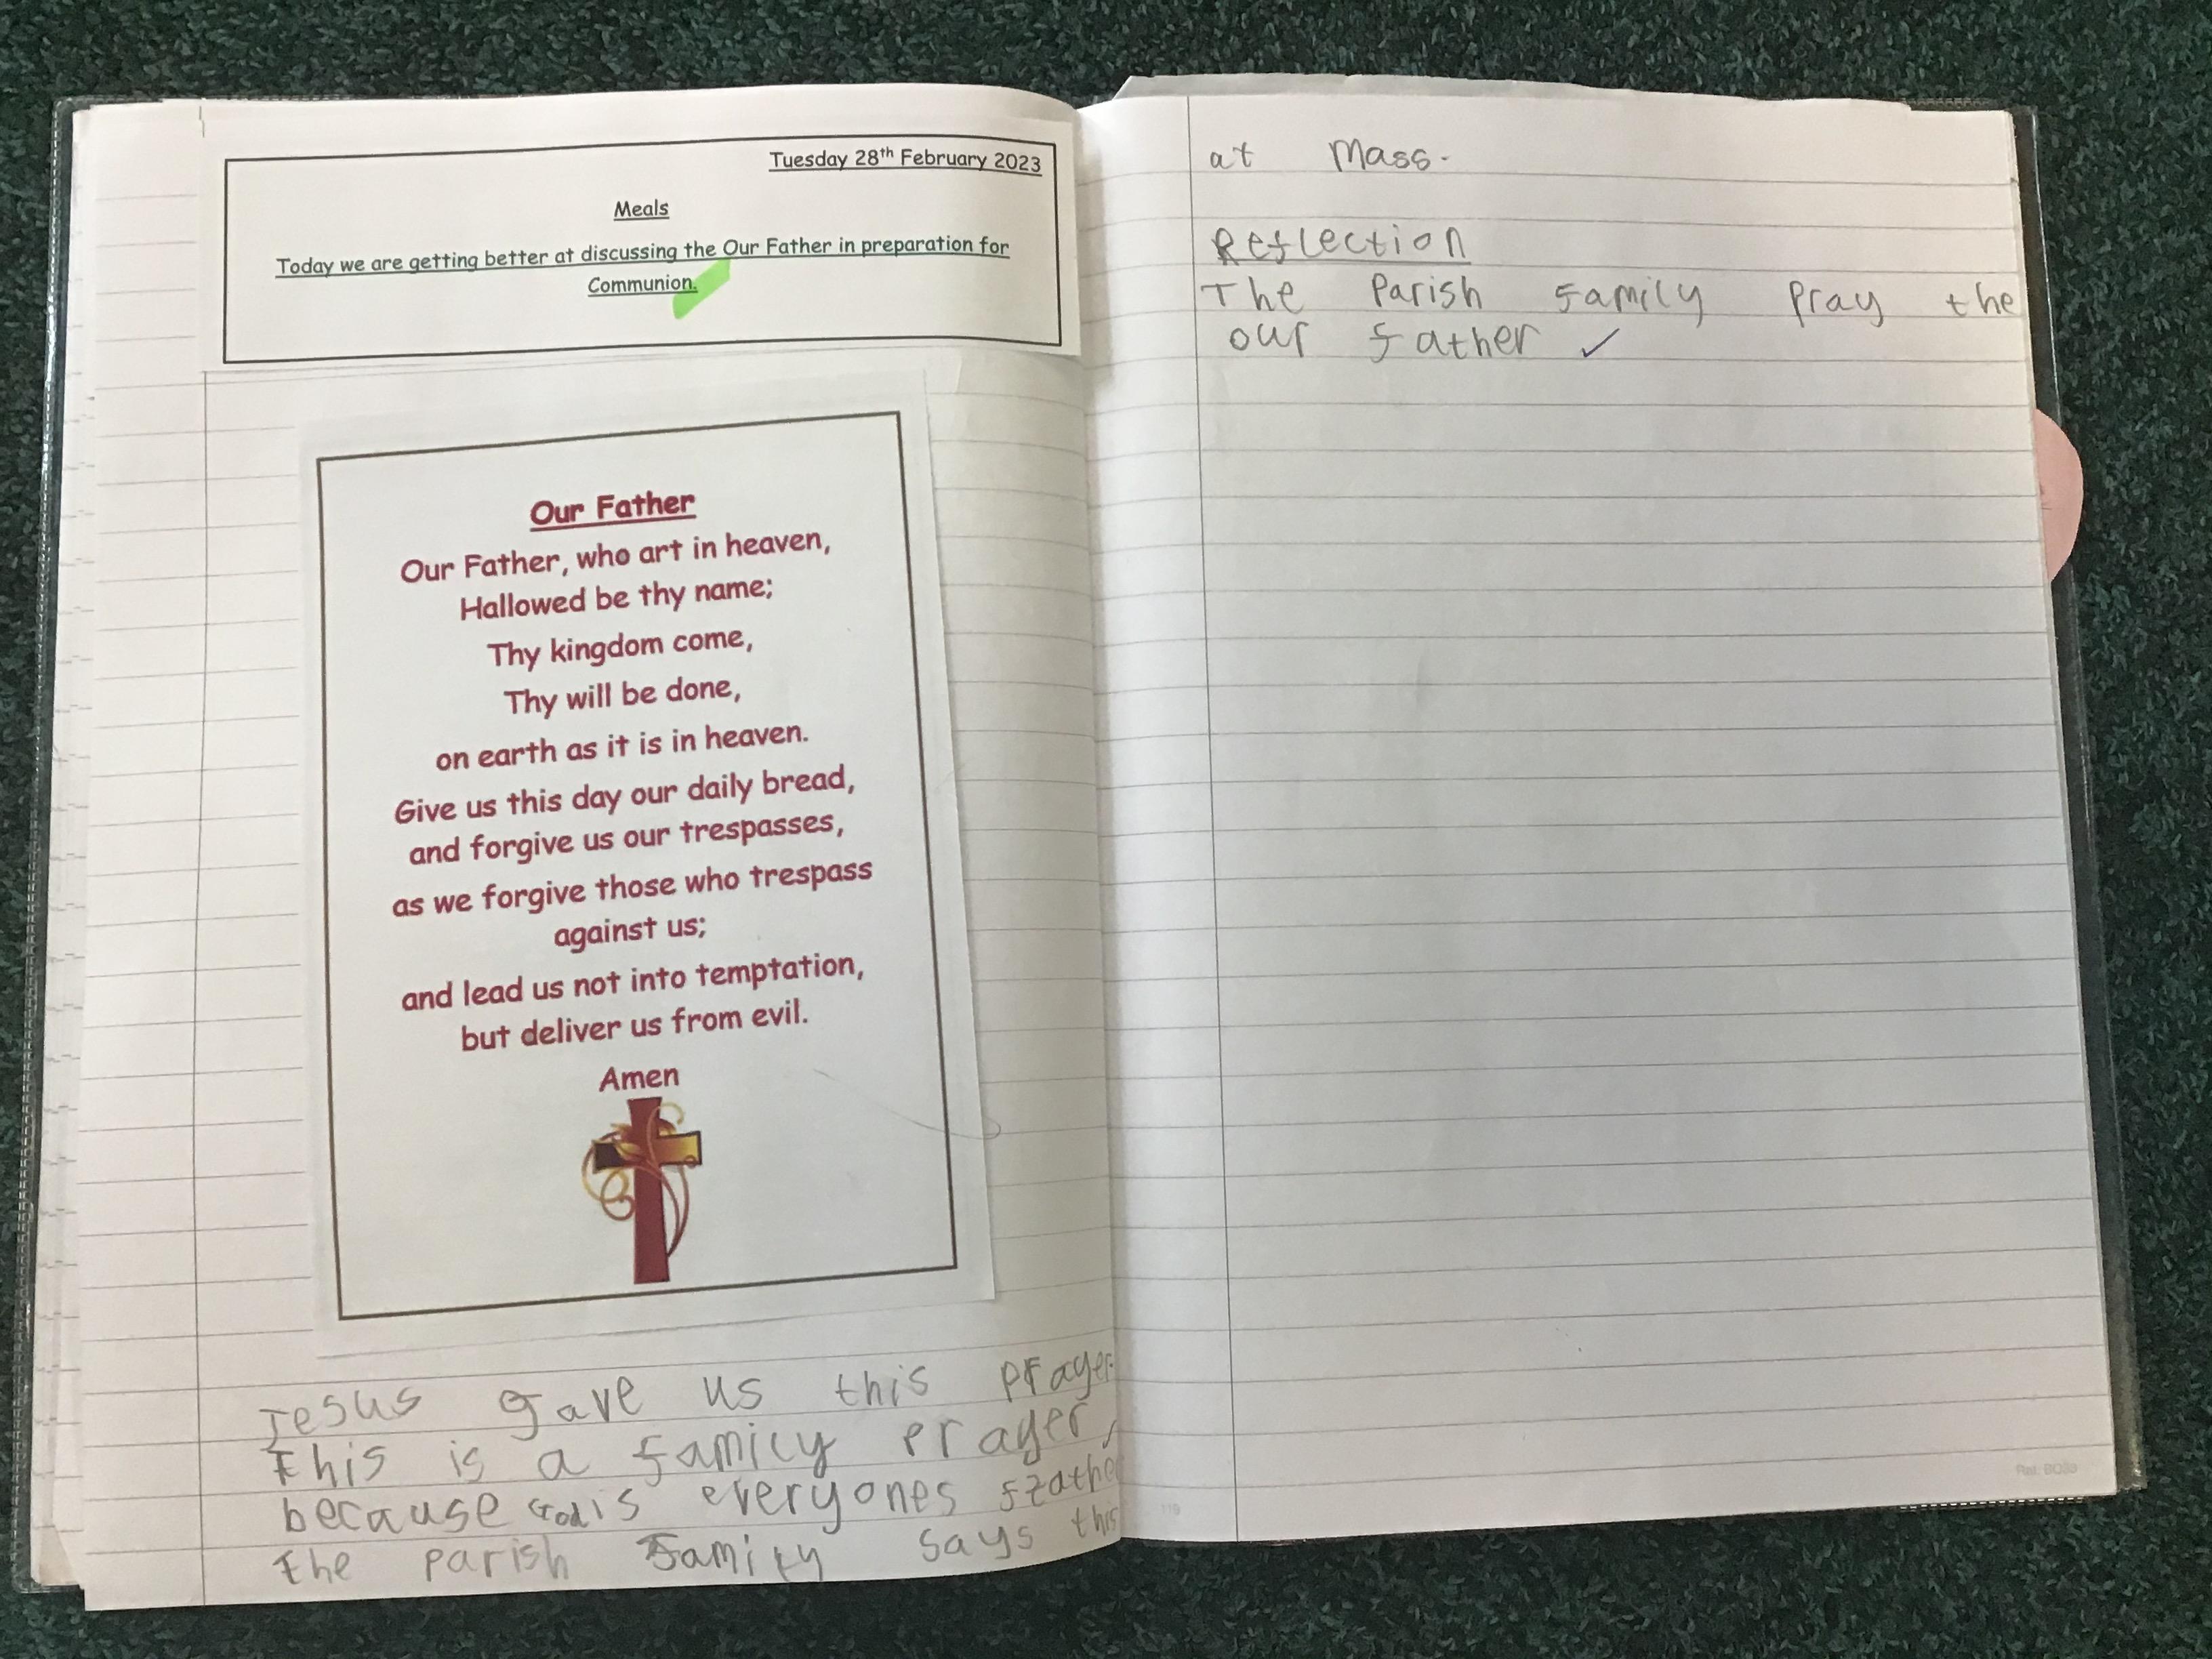 Tuesday 28th February 2023
Meals
Today we are getting better at discussing the Our Father in preparation for
Communion.
Our Father
Our Father, who art in heaven,
Hallowed be thy name;
Thy kingdom come,
Thy will be done,
on earth as it is in heaven.
Give us this day our daily bread,
and forgive us our trespasses,
as we forgive those who trespass
against us;
and lead us not into temptation,
but deliver us from evil.
Amen
Jesus gave us this prayer.
This is a family prayer
because God is everyones
the parish family says this
at Mass.
Reflection
The Parish family pray the
our father